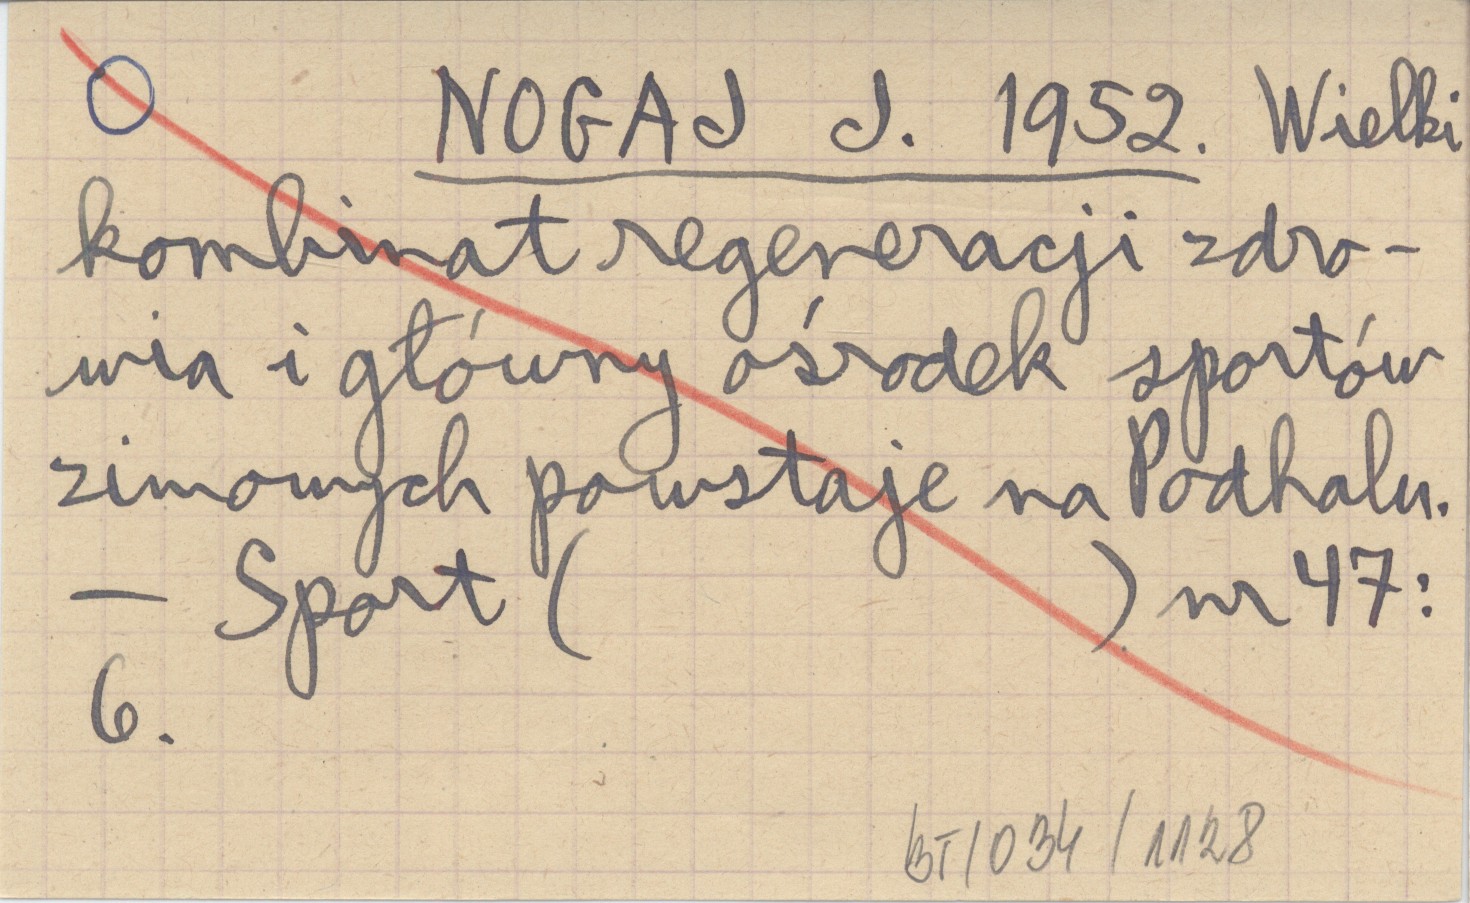 NOGAJ J. 1952. Wielki
kombinat regeneracji zdro-
wia i główny ośrodek sportów
zimowych powstaje na Podhalu.
— Sport ( ) nr 47:
6.
BT/034/1128